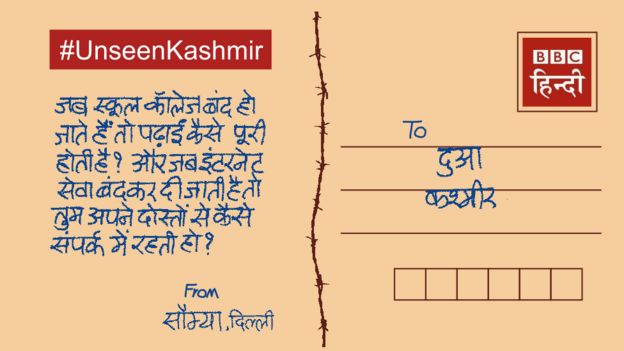 #UnseenKashmir
जब स्कूल कॉलेज बंद हो
जाते हैं तो पढ़ाई कैसे पूरी
होती है? और जब इंटरनेट
सेवा बंद कर दी जाती है तो
तुम अपने दोस्तों से कैसे
संपर्क में रहती हो?
From
सौम्या, दिल्ली
BBC
हिन्दी
To
दुआ
कश्मीर